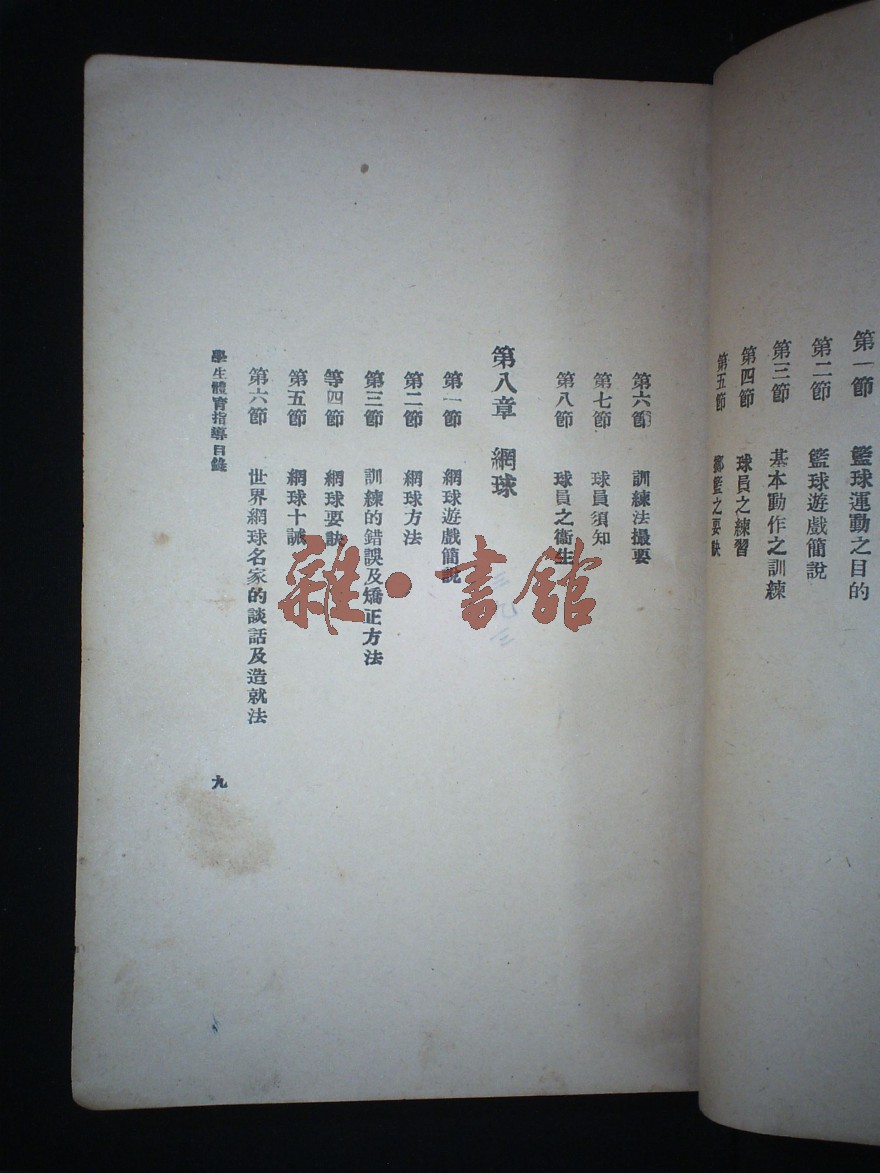 第一節　籃球運動之目的
第二節　籃球遊戲簡說
第三節　基本動作之訓練
第四節　球員之練習
第五節　擲籃之要訣
第六節　訓練法撮要
第七節　球員須知
第八節　球員之衞生
第八章　網球
第一節　網球遊戲簡說
第二節　網球方法
第三節　訓練的錯誤及矯正方法
等四節　網球要訣
第五節　網球十誡
第六節　世界網球名家的談話及造就法
學生體育指導目錄　九
雜·書館